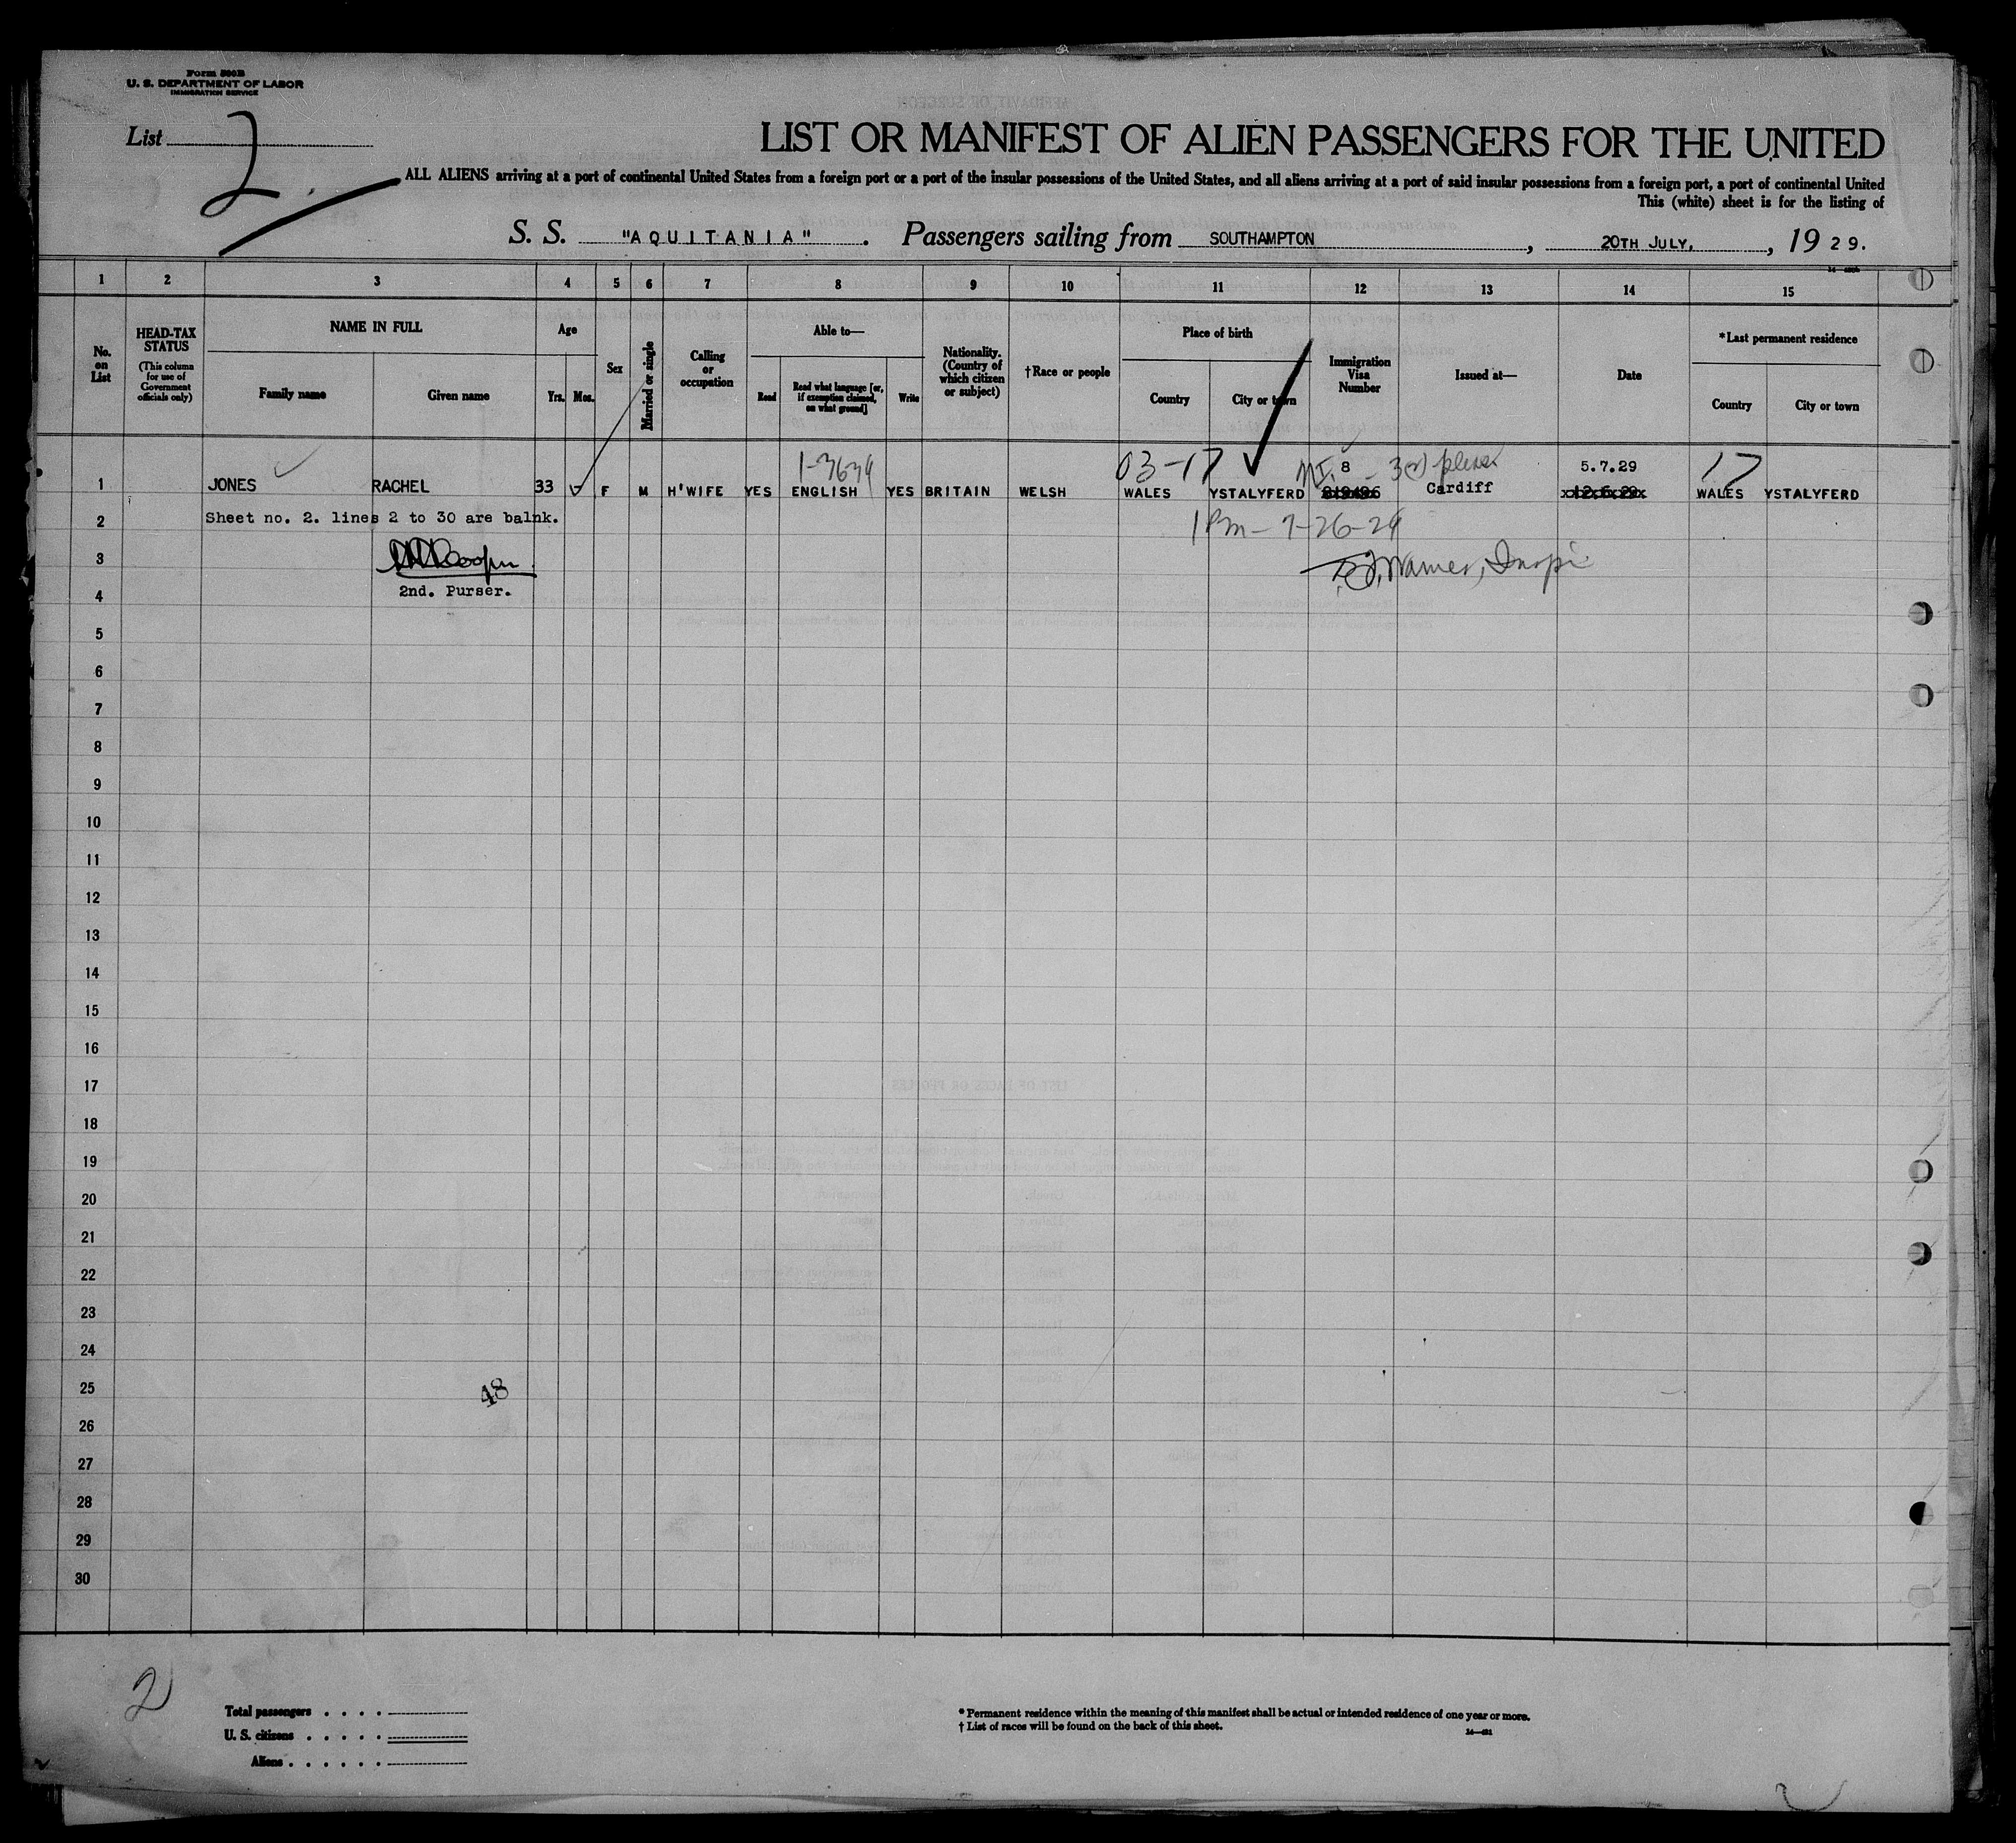 Form 500B
U. S. DEPARTMENT OF LABOR
IMMIGRATION SERVICE
List 2
LIST OR MANIFEST OF ALIEN PASSENGERS FOR THE UNITED
ALL ALIENS arriving at a port of continental United States from a foreign port or a port of the insular possessions of the United States, and all aliens arriving at a port of said insular possessions from a foreign port, a port of continental United
This (white) sheet is for the listing of
S. S. "AQUITANIA". Passengers sailing from SOUTHAMPTON, 20TH JULY, , 1929.
1 2 3 4 5 6 7 8 9 10 11 12 13 14 15
No. on List
HEAD-TAX STATUS (This column for use of Government officials only)
NAME IN FULL
Family name Given name
Age
Yrs. Mos.
Sex
Married or single
Calling or occupation
Able to—
Read Read what language [or, if exemption claimed, on what ground] Write
Nationality. (Country of which citizen or subject)
†Race or people
Place of birth
Country City or town
Immigration Visa Number
Issued at—
Date
*Last permanent residence
Country City or town
03-17 8 5.7.29 17
1 JONES RACHEL 33 F M H'WIFE YES ENGLISH YES BRITAIN WELSH WALES YSTALYFERD Cardiff WALES YSTALYFERD
2 Sheet no. 2. lines 2 to 30 are balnk.
1 Pm - 7-26-29
3
4 2nd. Purser.
5
6
7
8
9
10
11
12
13
14
15
16
17
18
19
20
21
22
23
24
25
48
26
27
28
29
30
2
Total passengers . . . .
U. S. citizens . . . . .
Aliens . . . . . .
* Permanent residence within the meaning of this manifest shall be actual or intended residence of one year or more.
† List of races will be found on the back of this sheet.